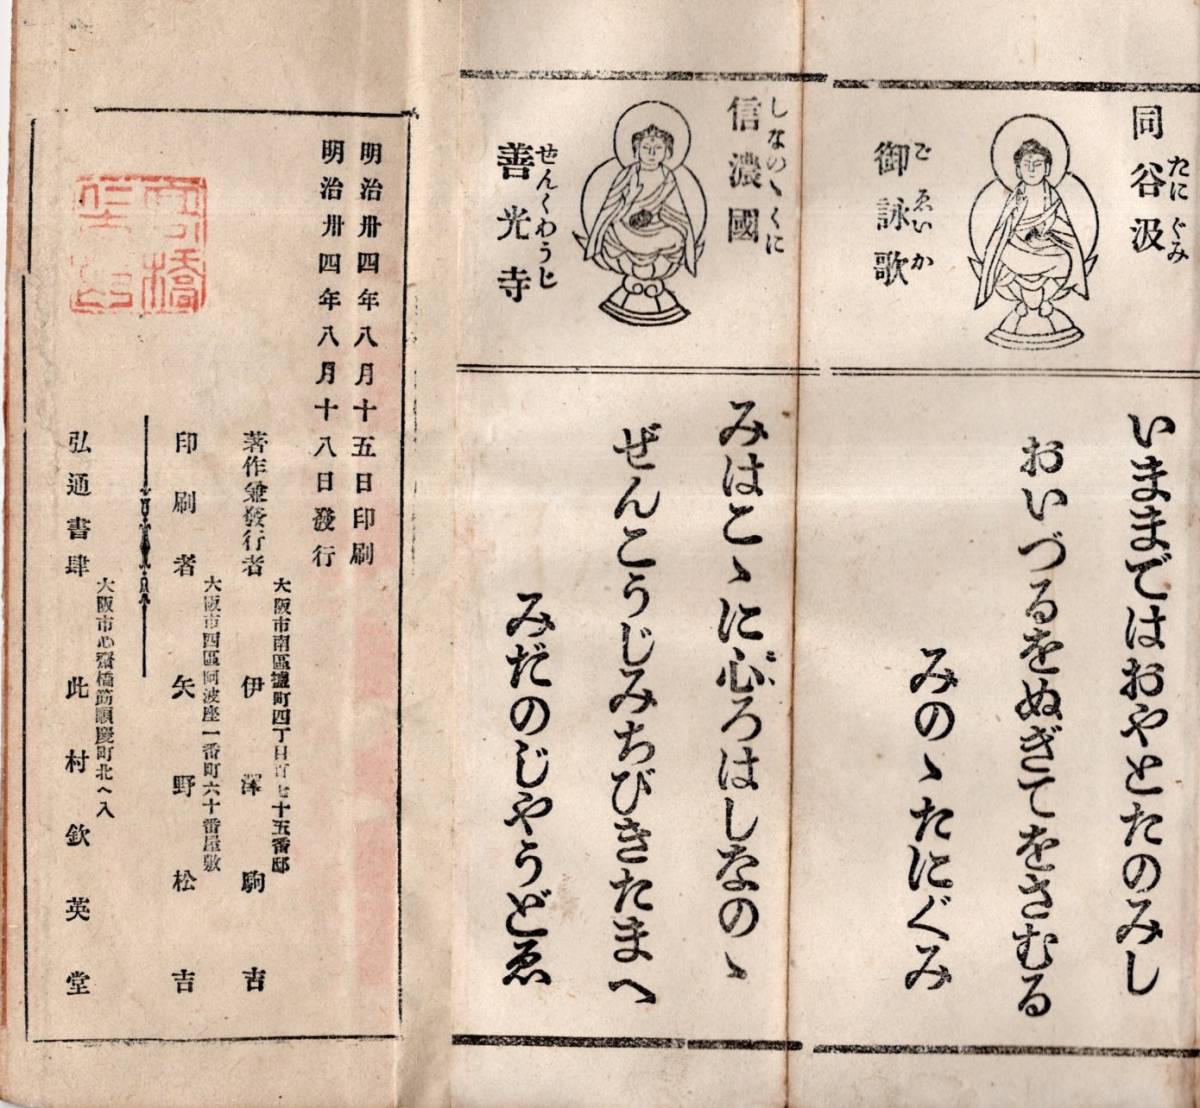 同谷汲
たにぐみ
御詠歌
ごゑいか
いままではおやとたのみし
おいづるをぬぎてをさむる
みのゝたにぐみ
信濃國
しなのゝくに
善光寺
せんくわうじ
みはこゝに心ろはしなのゝ
こゝ
ぜんこうじみちびきたまへ
みだのじやうどゑ
明治卅四年八月十五日印刷
明治卅四年八月十八日發行
大阪市南區
町四丁目百七十五番邸
著作兼發行者 伊澤駒吉
大阪市西區阿波座一番町六十番屋敷
印刷者 矢野松吉
大阪市心齋橋筋順慶町北へ入
弘通書肆 此村欽英堂